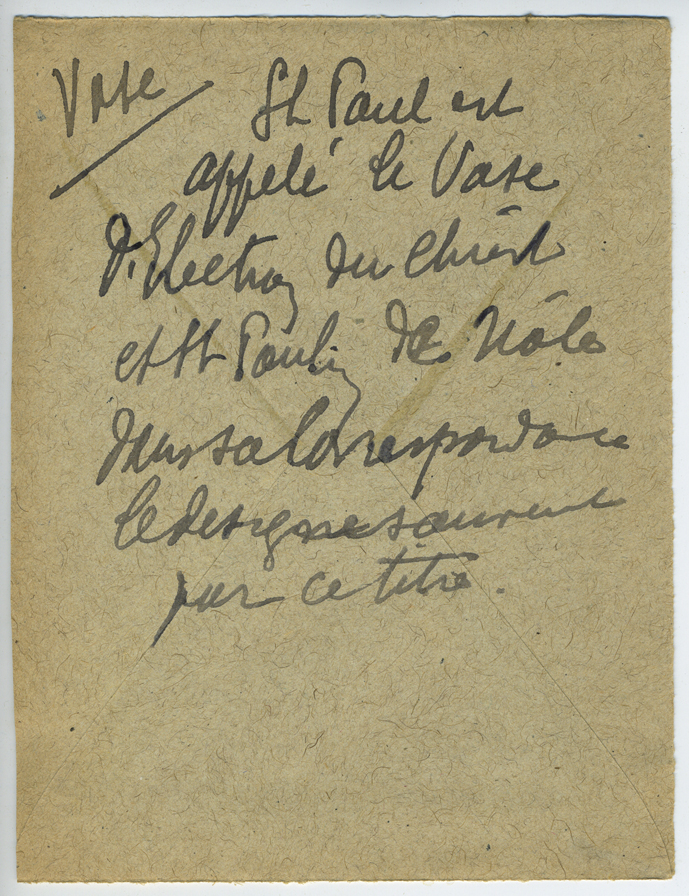 Vase St Paul est
appelé le Vase
d'Election du Christ
et St Paulin de Nôle
dans sa Correspondance
le designe souvent
par ce titre.